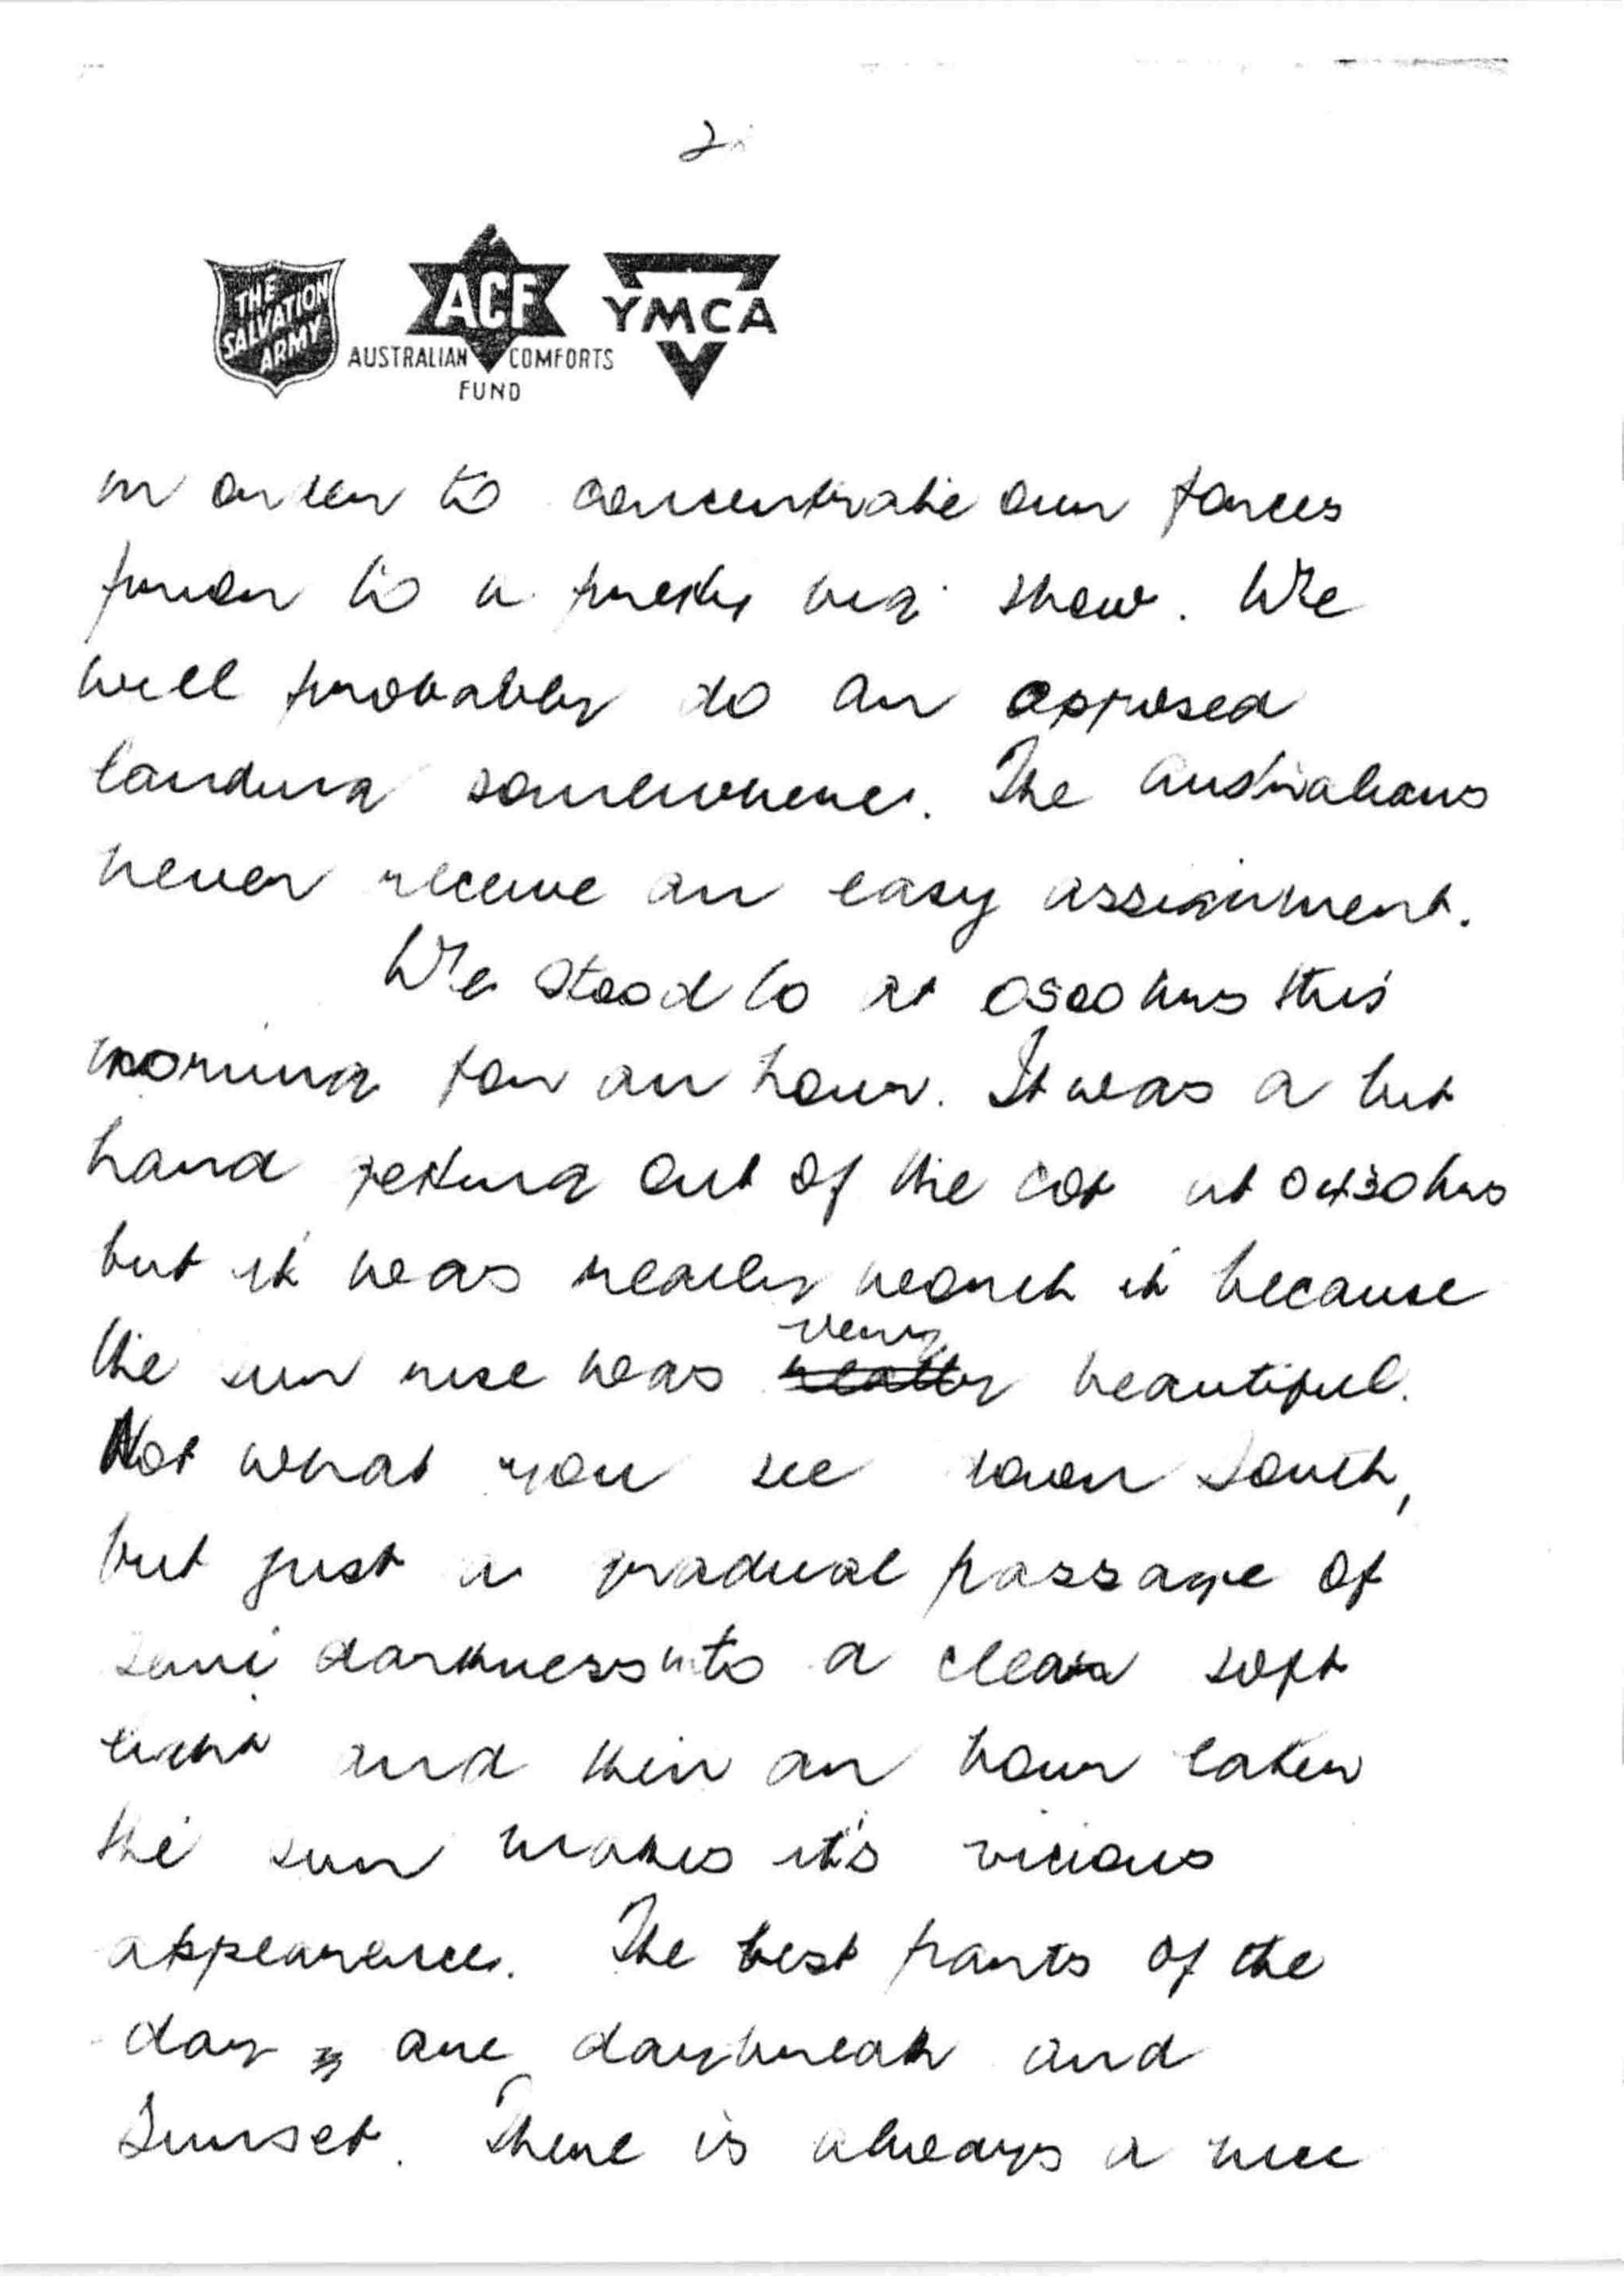 2.
THE SALVATION ARMY
ACF
AUSTRALIAN COMFORTS FUND
YMCA
in order to concentrate our forces
prior to a pretty big show. We
will probably do an opposed
landing somewhere. The Australians
never receive an easy assignment.
We stood to at 0500 hrs this
morning for an hour. It was a bit
hard getting out of the cot at 0430 hrs
but it was really worth it because
the sun rise was really very beautiful.
Not what you see down South,
but just a gradual passage of
semi darkness into a clear soft
light and then an hour later
the sun makes it's vicious
appearance. The best parts of the
day are daybreak and
Sunset. There is always a nice